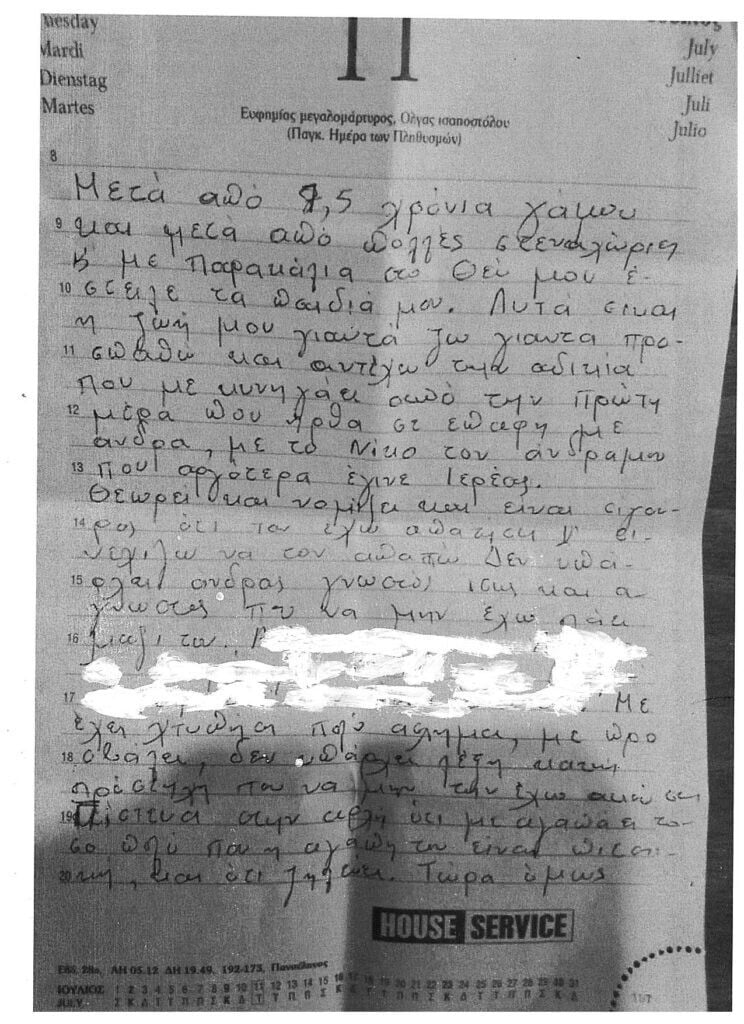 Tuesday
Mardi
Dienstag
Martes
11
July
Julliet
Juli
Julio
Ευφημίας μεγαλομάρτυρος, Όλγας ισαποστόλου
(Παγκ. Ημέρα των Πληθυσμών)
8
Μετά από 7,5 χρόνια γάμου
9 και μετά από πολλές στεναχώριες
με παρακάλια στο Θεό μου έ-
10 στειλε τα παιδιά μου. Αυτά είναι
η ζωή μου γιαυτά ζω γιαυτα προ-
11 σπαθώ και αντέχω την αδικία
που με κυνηγάει από την πρώτη
12 μέρα που ήρθα σε επαφή με
άνδρα, με το Νίκο τον άνδραμου
13 που αργότερα έγινε Ιερέας.
Θεωρεί και νομίζει και είναι σιγου-
14 ρος ότι τον έχω απατήσει
να τον απατώ Δεν υπά-
15 ρχει άνδρας γνωστός ίσως και α-
γνωστος που να μην έχω πάει
16 μαζί του.
17 Με
έχει χτυπήσει πολύ άσχημα, με προ
18 σβάλει, δεν υπάρχει λέξη κακή
που να μην την έχω ακούσει
19 Πίστευα στην αρχή ότι με αγαπάει το-
σο πολύ που η αγάπη του είναι
20 και ότι ζηλεύει. Τώρα όμως
HOUSE SERVICE
Εβδ. 28α, ΑΗ 05.12 ΔΗ 19.49, 192-173, Πανσέληνος
ΙΟΥΛΙΟΣ 1 2 3 4 5 6 7 8 9 10 11 12 13 14 15 16 17 18 19 20 21 22 23 24 25 26 27 28 29 30 31
JULY Σ Κ Δ Τ Τ Π Π Σ Κ Δ Τ Τ Π Π Σ Κ Δ Τ Τ Π Π Σ Κ Δ Τ Τ Π Π Σ Κ Δ
11/7